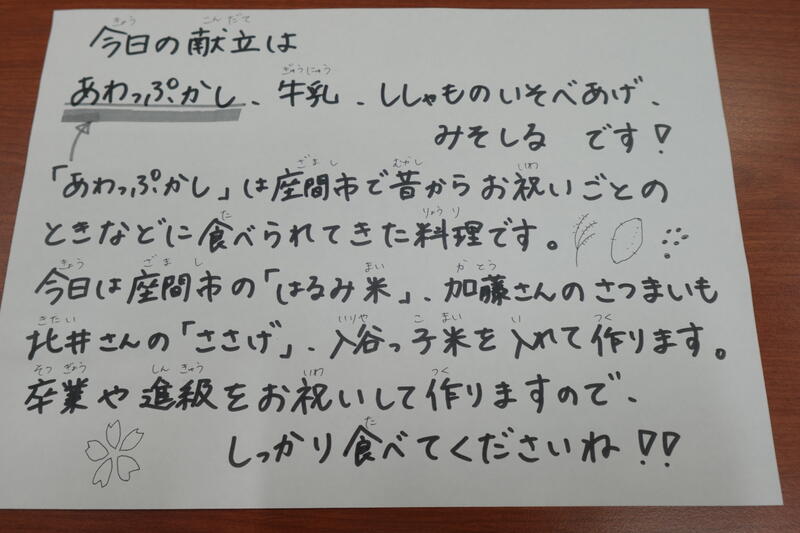 今日の献立は
あわっぷかし、牛乳、ししゃものいそべあげ、
みそしる です!
「あわっぷかし」は座間市で昔からお祝いごとの
ときなどに食べられてきた料理です。
今日は座間市の「はるみ米」、加藤さんのさつまいも
北井さんの「ささげ」、入谷っ子米を入れて作ります。
卒業や進級をお祝いして作りますので、
しっかり食べてくださいね!!